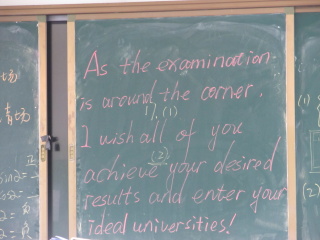 As the examination
is around the corner.
1, (1)
I wish all of you
(2)
achieve your desired
results and enter your
ideal universities!
(1)
(2)